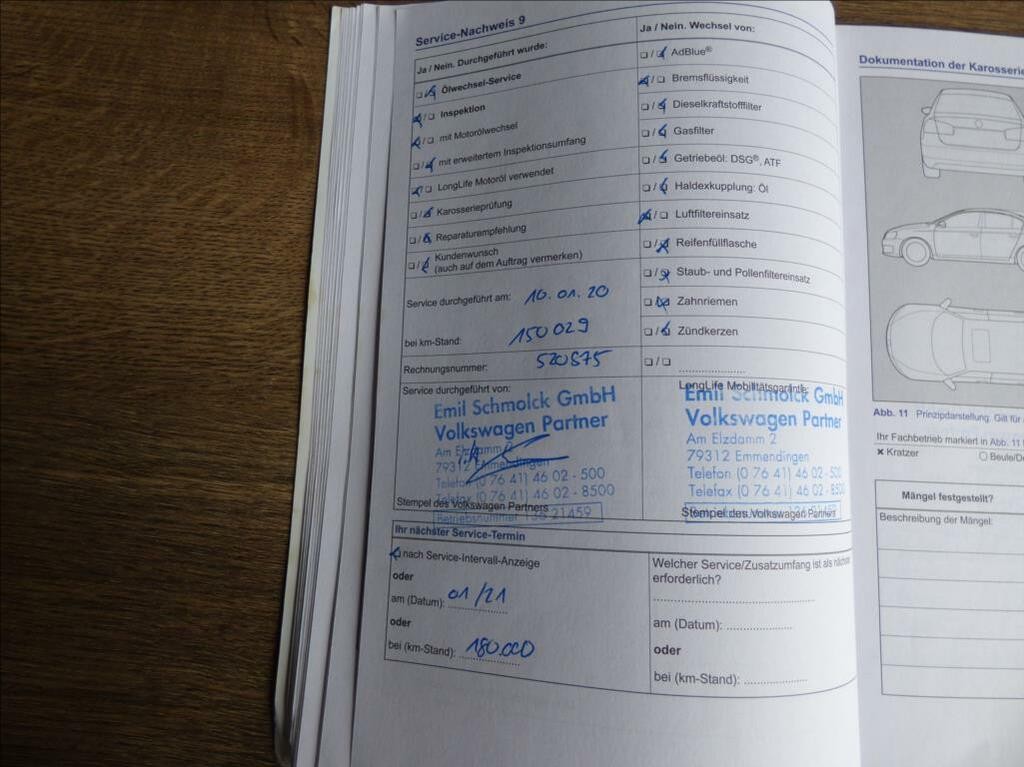 Service-Nachweis 9
Ja / Nein. Durchgeführt wurde:
Ölwechsel-Service
Inspektion
mit Motorölwechsel
mit erweitertem Inspektionsumfang
LongLife Motoröl verwendet
Karosserieprüfung
Reparaturempfehlung
Kundenwunsch
(auch auf dem Auftrag vermerken)
Service durchgeführt am: 10.01.20
bei km-Stand: 150029
Rechnungsnummer: 520875
Service durchgeführt von:
Emil Schmolck GmbH
Volkswagen Partner
Am Elzdamm 2
79312 Emmendingen
Telefon (0 76 41) 46 02 - 500
Telefax (0 76 41) 46 02 - 8500
Stempel des Volkswagen Partners
Betriebsnummer 21459
Ja / Nein. Wechsel von:
AdBlue®
Bremsflüssigkeit
Dieselkraftstofffilter
Gasfilter
Getriebeöl: DSG®, ATF
Haldexkupplung: Öl
Luftfiltereinsatz
Reifenfüllflasche
Staub- und Pollenfiltereinsatz
Zahnriemen
Zündkerzen
LongLife Mobilitätsgarantie:
Emil Schmolck GmbH
Volkswagen Partner
Am Elzdamm 2
79312 Emmendingen
Telefon (0 76 41) 46 02 - 500
Telefax (0 76 41) 46 02 - 8500
Stempel des Volkswagen Partners
Ihr nächster Service-Termin
nach Service-Intervall-Anzeige
oder
am (Datum): 01/21
oder
bei (km-Stand): 180.000
Welcher Service/Zusatzumfang ist als
erforderlich?
am (Datum):
oder
bei (km-Stand):
Dokumentation der Karosserie
Abb. 11 Prinzipdarstellung. Gilt für
Ihr Fachbetrieb markiert in Abb. 11
× Kratzer
Beule/D
Mängel festgestellt?
Beschreibung der Mängel: